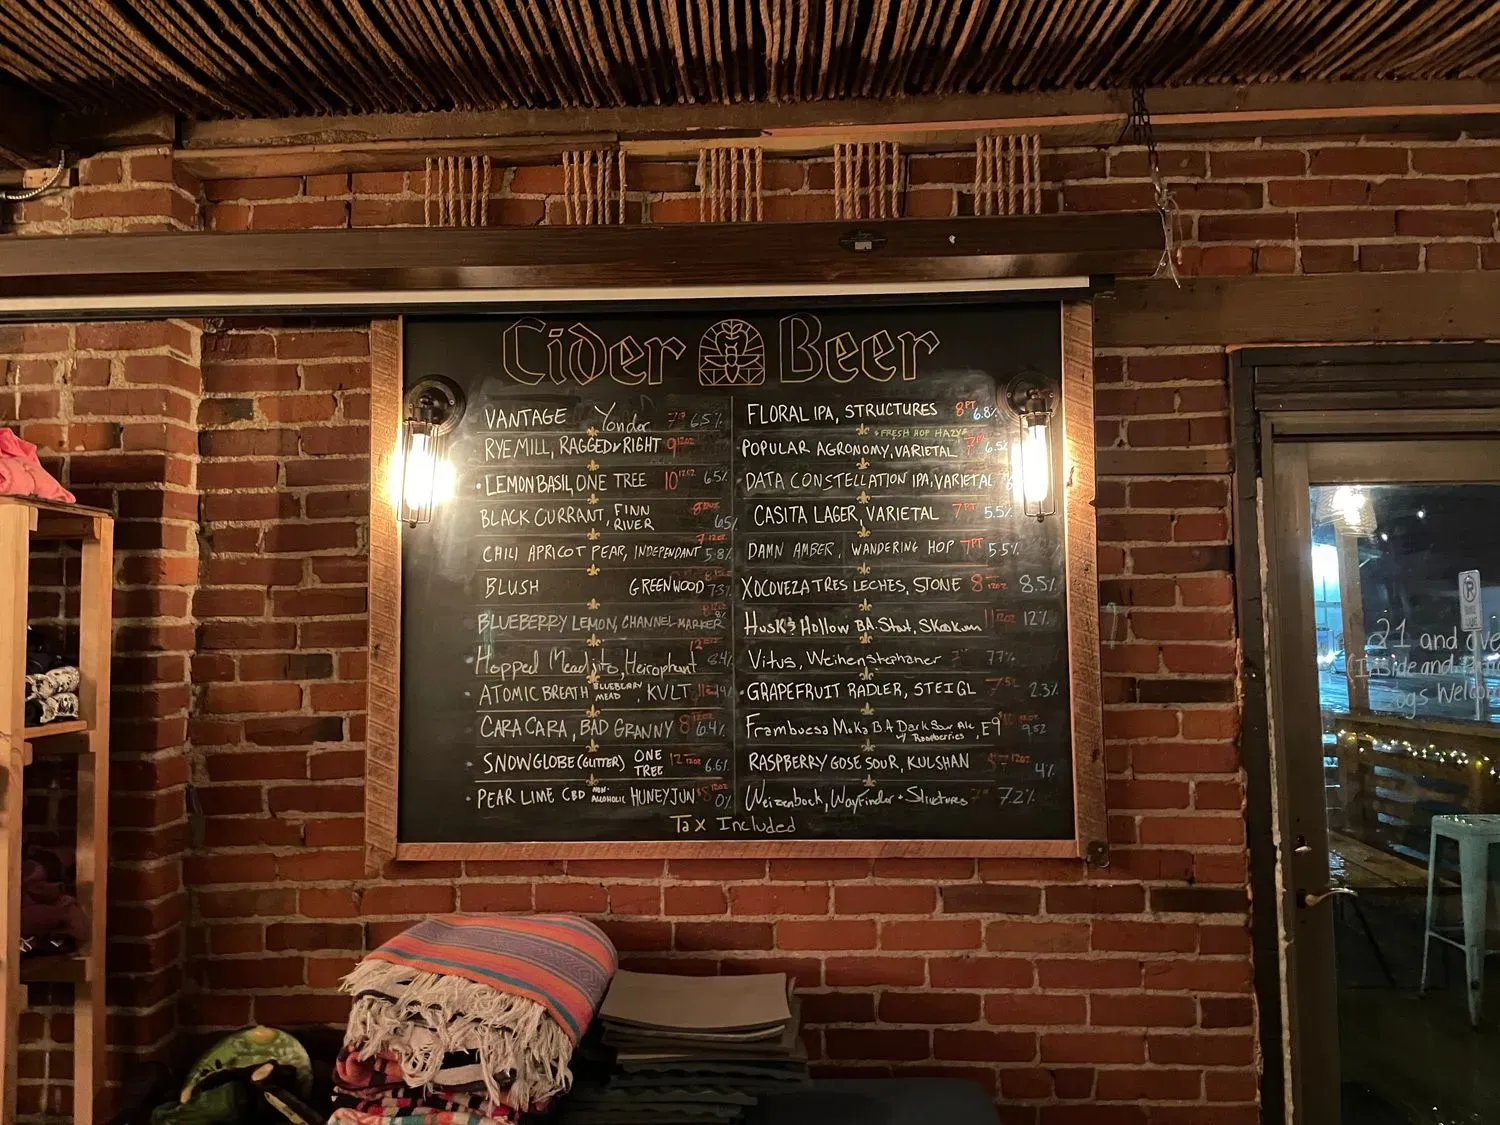 Cider Beer
VANTAGE Yonder 7 PT 6.5%
RYE MILL, RAGGED & RIGHT 9 12oz
• LEMON BASIL, ONE TREE 10 12oz 6.5%
BLACK CURRANT, FINN RIVER 6.5%
CHILI APRICOT PEAR, INDEPENDANT 7 12oz 5.8%
BLUSH GREENWOOD 7.3%
BLUEBERRY LEMON, CHANNEL MARKER 8%
Hopped Meadjito, Heirophant 12 8.4%
• ATOMIC BREATH BLUEBERRY MEAD, KVLT 14%
• CARA CARA, BAD GRANNY 8 12oz 6.4%
• SNOWGLOBE (GLITTER) ONE TREE 12 12oz 6.6%
• PEAR LIME CBD NON-ALCOHOLIC HUNEYJUN $5 12oz 0%
FLORAL IPA, STRUCTURES 8 PT 6.8%
FRESH HOP HAZY
POPULAR AGRONOMY, VARIETAL 7 6.5%
• DATA CONSTELLATION IPA, VARIETAL
CASITA LAGER, VARIETAL 7 PT 5.5%
DAMN AMBER, WANDERING HOP 7 PT 5.5%
XOCOVEZA TRES LECHES, STONE 8 12oz 8.5%
Husk & Hollow BA. Stout, Skookum 11 12oz 12%
Vitus, Weihenstephaner 7 7.7%
• GRAPEFRUIT RADLER, STEIGL 7 2.3%
Frambuesa Moka BA Dark Sour Ale w/ Raspberries, E9 9.52
RASPBERRY GOSE SOUR, KULSHAN 4%
Weizenbock, Wayfinder + Structures 7 7.2%
Tax Included
21 and
(Inside and
Welcome